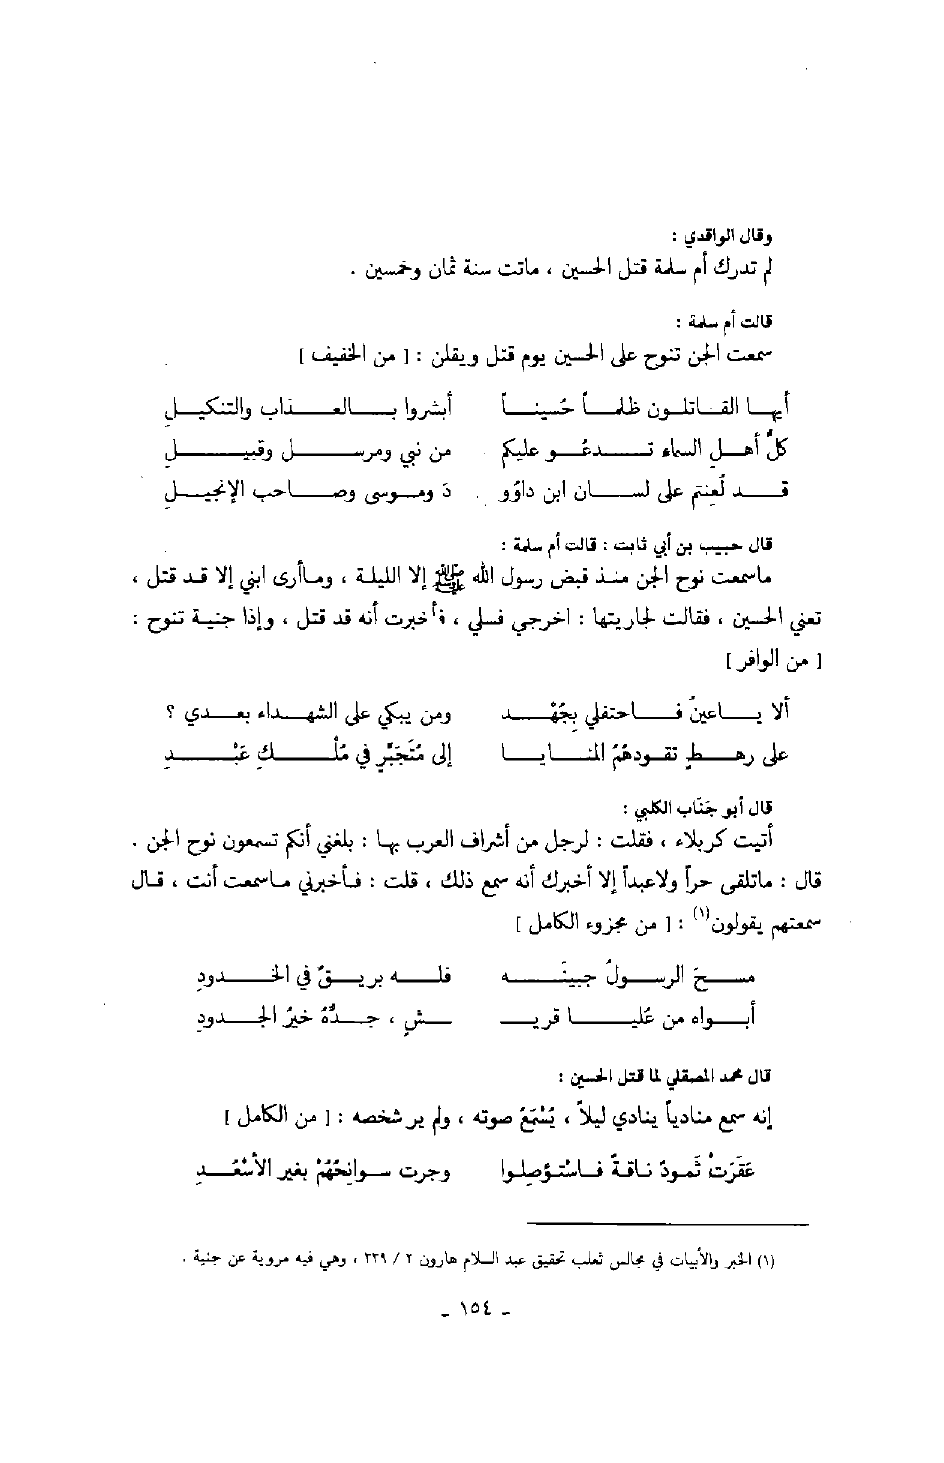 وقال الواقدي :
لم تدرك أم سلمة قتل الحسين ، ماتت سنة ثمان وخمسين .
قالت أم سلمة :
سمعت الجن تنوح على الحسين يوم قتل ويقلن : [ من الخفيف ]
أيها القاتلون ظلماً حُسيناً أبشروا بالعذاب والتنكيلِ
كلُّ أهلِ السماء تدعُو عليكم من نبي ومرسلٍ وقبيلِ
قد لُعِنتم على لسان ابن داوُو دَ وموسى وصاحب الإنجيلِ
قال حبيب بن أبي ثابت : قالت أم سلمة :
ماسمعت نوح الجن منذ قبض رسول الله ﷺ إلا الليلة ، وماأرى ابني إلا قد قتل ،
تعني الحسين ، فقالت لجاريتها : اخرجي فسلي ، فأخبرت أنه قد قتل ، وإذا جنية تنوح :
[ من الوافر ]
ألا ياعينُ فاحتفلي بِجُهْدِ ومن يبكي على الشهداء بعدي ؟
على رهطٍ تقودهُمُ المنايا إلى مُتَجَبِّرٍ في مُلْكِ عَبْدِ
قال أبو جَنَاب الكلبي :
أتيت كربلاء ، فقلت : لرجل من أشراف العرب بها : بلغني أنكم تسمعون نوح الجن .
قال : ماتلقى حراً ولاعبداً إلا أخبرك أنه سمع ذلك ، قلت : فأخبرني ماسمعت أنت ، قال
سمعتهم يقولون(١) : [ من مجزوء الكامل ]
مسحَ الرسولُ جبينَه فله بريقٌ في الخدودِ
أبواه من عُليا قريـ ـشٍ ، جدُّهُ خيرُ الجدودِ
قال محمد المصقلي لما قتل الحسين :
إنه سمع منادياً ينادي ليلاً ، يُسْمَعُ صوته ، ولم ير شخصه : [ من الكامل ]
عَقَرَتْ ثَمودٌ ناقةً فاسْتُؤصِلوا وجرت سوانِحُهُمْ بغير الأسْعُدِ
(١) الخبر والأبيات في مجالس ثعلب تحقيق عبد السلام هارون ٢ / ٣٣٩ ، وهي فيه مروية عن جنية .
- ١٥٤ -